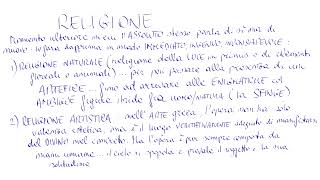 RELIGIONE
Momento ulteriore in cui l'ASSOLUTO stesso parla di sé ma di
nuovo lo fa dapprima in modo IMMEDIATO, INGENUO, INCONSAPEVOLE:
1) RELIGIONE NATURALE (religione della LUCE in primis o di elementi
floreali o animali)... per poi passare alla presenza di un
ARTEFICE... fino ad arrivare alle ENIGMATICHE ed
AMBIGUE figure ibride fra uomo/natura (la SFINGE)
2) RELIGIONE ARTISTICA... nell'ARTE greca, l'opera non ha solo
valenza estetica, ma è il luogo VERITATIVAMENTE adeguato di manifestarsi
del DIVINO nel concreto. Ma l'opera è pur sempre composta da
mani umane... il cielo si spopola e prevale il soggetto e la sua
solitudine